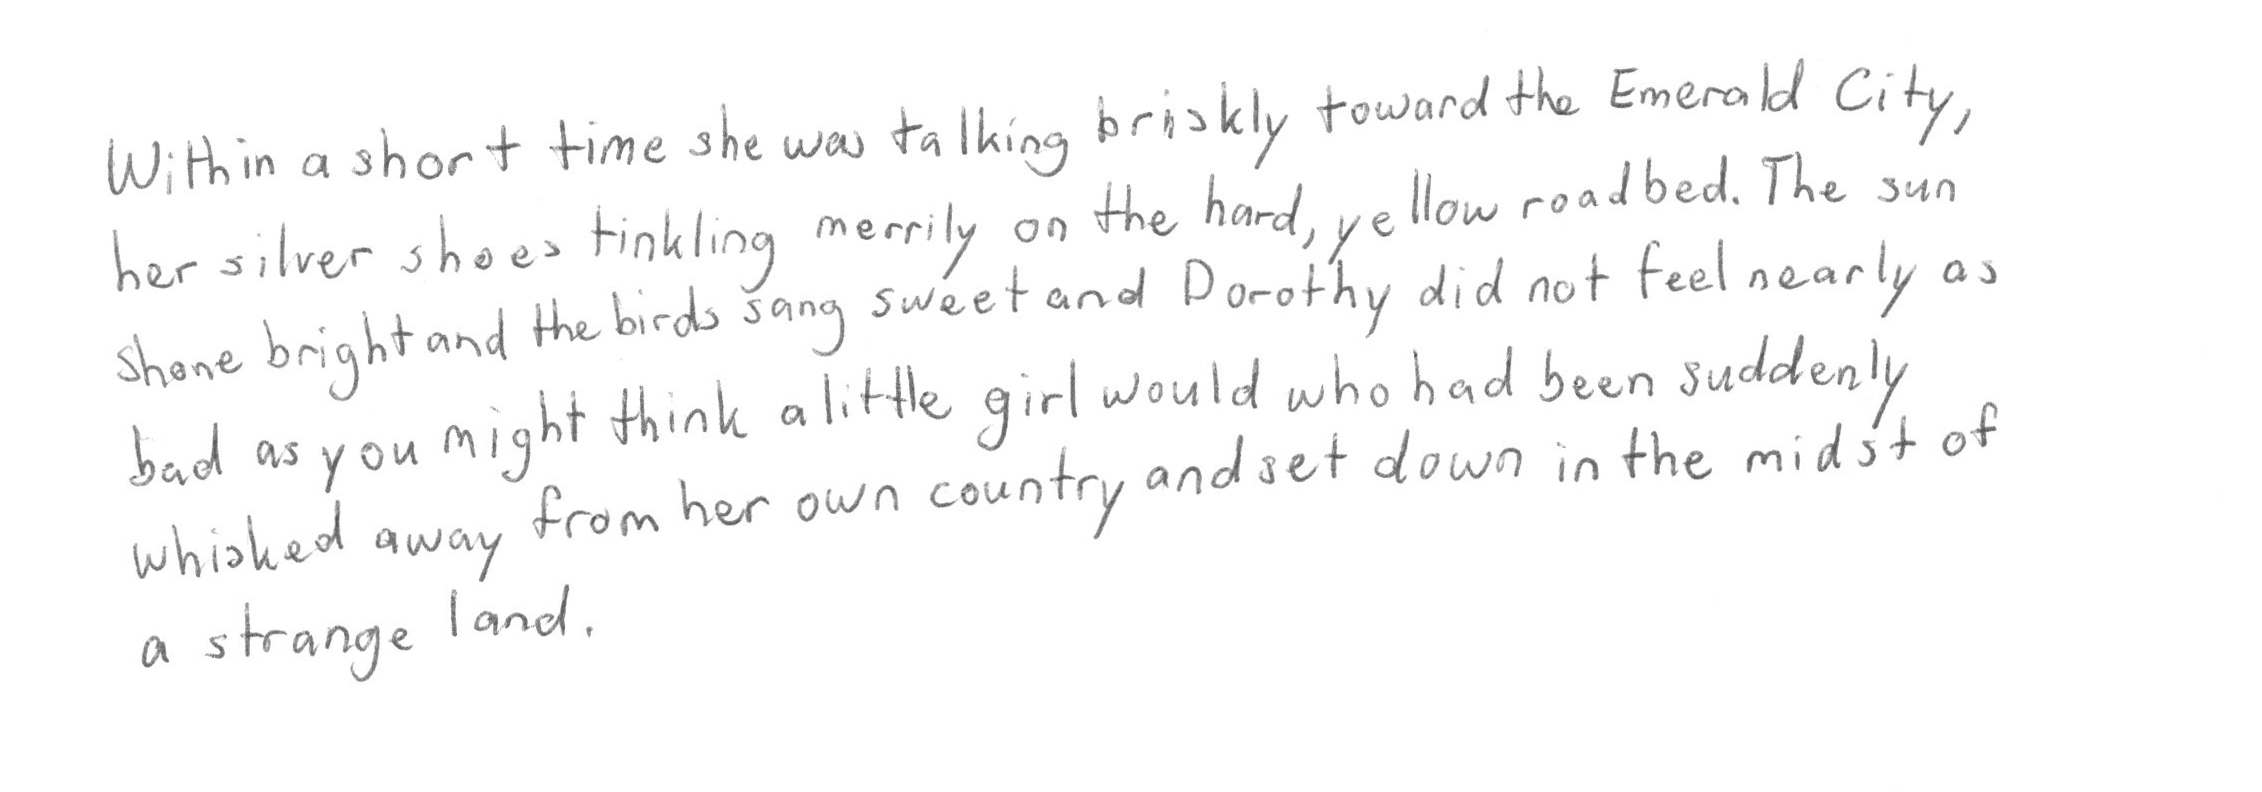 Within a short time she was talking briskly toward the Emerald City,
her silver shoes tinkling merrily on the hard, yellow roadbed. The sun
shone bright and the birds sang sweet and Dorothy did not feel nearly as
bad as you might think a little girl would who had been suddenly
whisked away from her own country and set down in the midst of
a strange land.